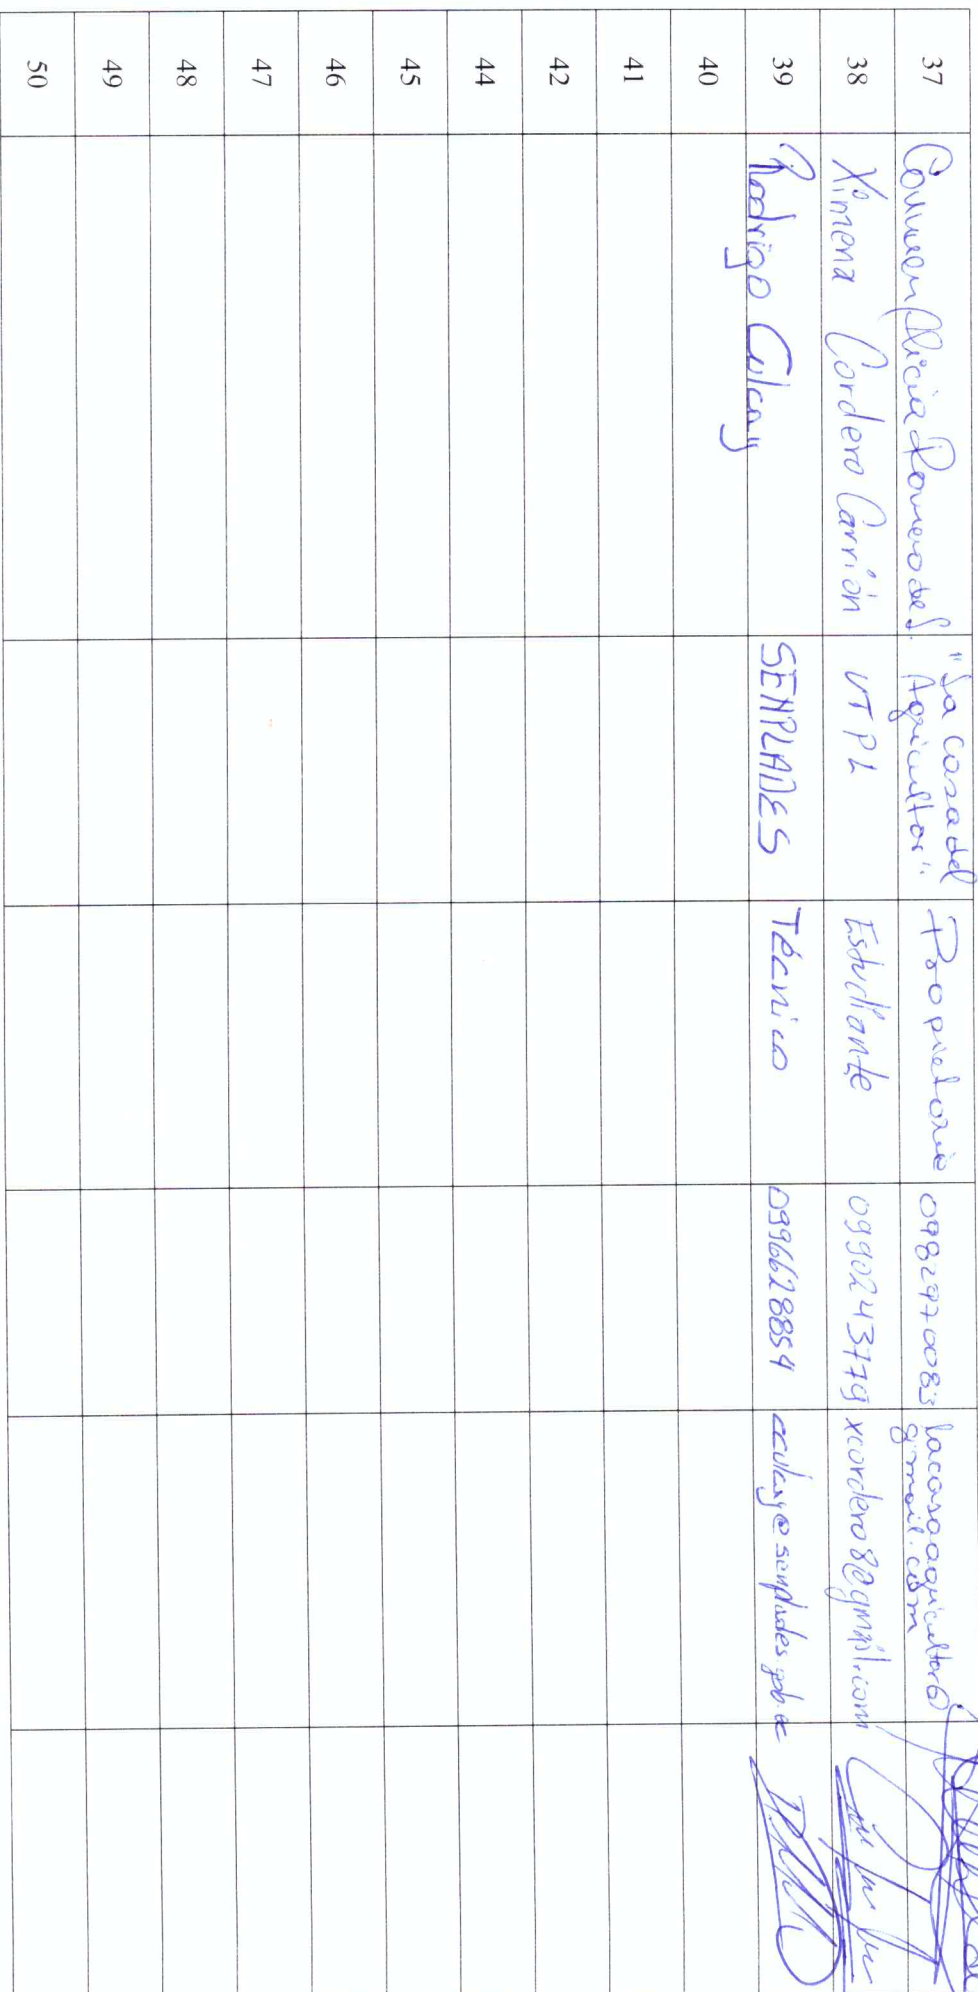 37 Carmen Alicia Romero de "La Casa del Agricultor". Propietaria 0982970083 lacasaagricultor@gmail.com
38 Ximena Cordero Carrión UTPL Estudiante 0990243779 xcordero8@gmail.com
39 Rodrigo Culcay SENPLADES Técnico 0996628854
40
41
42
44
45
46
47
48
49
50